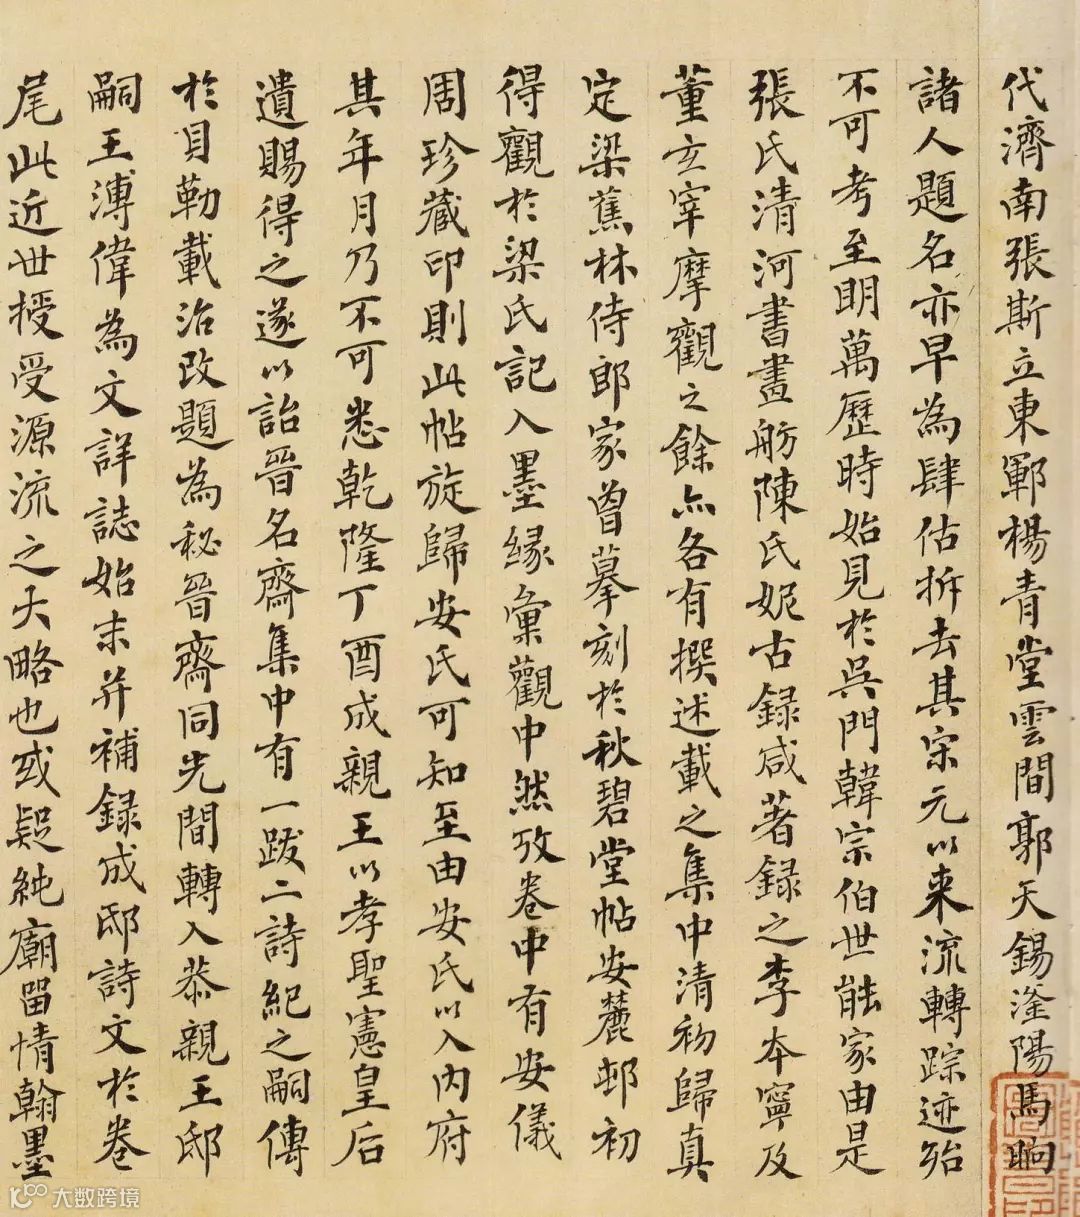 代濟南張斯立東鄆楊青堂雲間郭天錫滏陽馬昫
諸人題名亦早為肆估拆去其宋元以来流轉踪迹殆
不可考至明萬歷時始見於吳門韓宗伯世能家由是
張氏清河書畫舫陳氏妮古録咸著録之李本寧及
董玄宰摩觀之餘亦各有撰述載之集中清初歸真
定梁蕉林侍郎家曾摹刻於秋碧堂帖安麓邨初
得觀於梁氏記入墨緣彙觀中然攷卷中有安儀
周珍藏印則此帖旋歸安氏可知至由安氏以入內府
其年月乃不可悉乾隆丁酉成親王以孝聖憲皇后
遺賜得之遂以詒晉名齋集中有一跋二詩紀之嗣傳
於貝勒載治改題為秘晉齋同光間轉入恭親王邸
嗣王溥偉為文詳誌始末并補録成邸詩文於卷
尾此近世授受源流之大略也或疑純廟留情翰墨
大数跨境